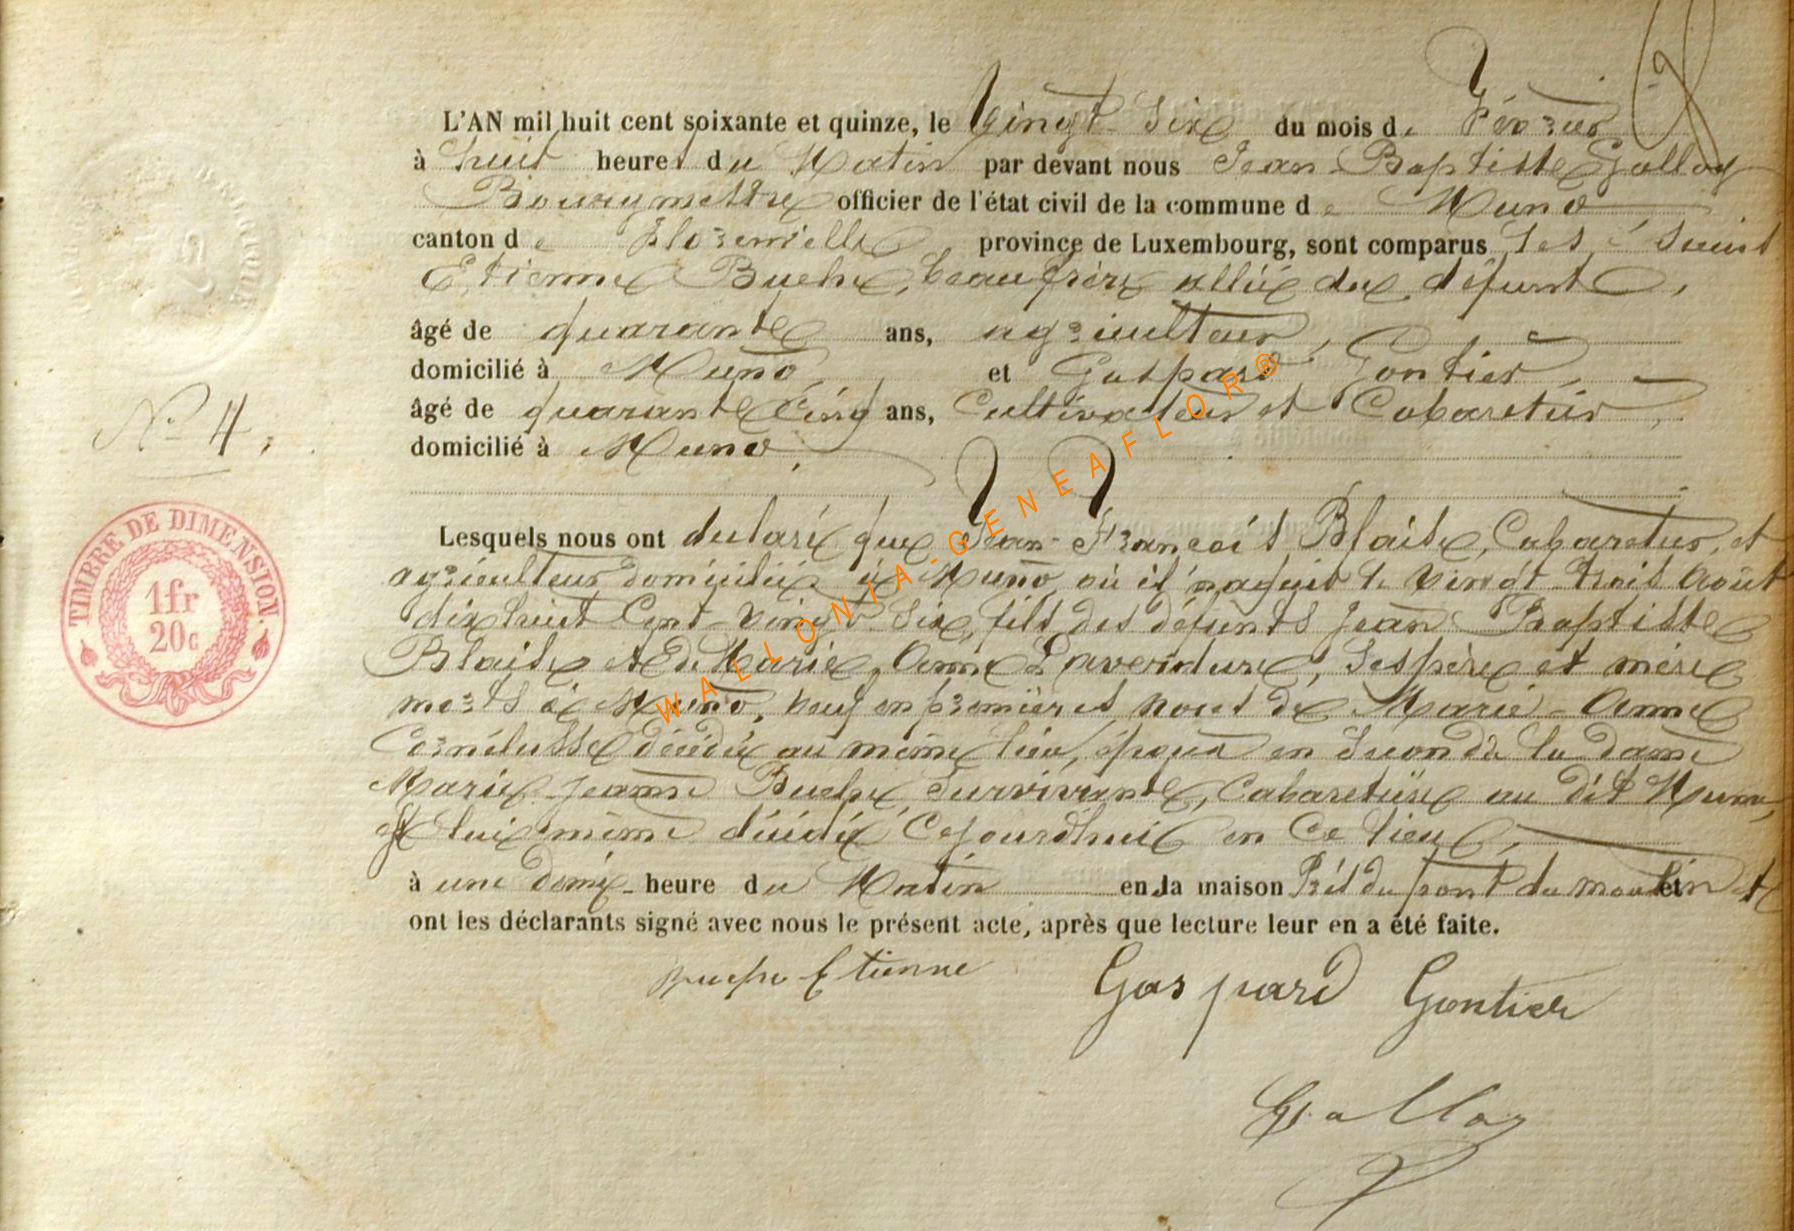 L'AN mil huit cent soixante et quinze, le Vingt-Six du mois de Février
à huit heures du Matin par devant nous Jean-Baptiste Galloy
Bourgmestre officier de l'état civil de la commune de Muno
canton de Florenville province de Luxembourg, sont comparus les
Etienne Buche, beau frère allié du défunt,
âgé de quarante ans, agriculteur,
domicilié à Muno, et Gaspard Gontier,
âgé de quarante Cinq ans, Cultivateur et Cabaretier,
domicilié à Muno,
N° 4.
TIMBRE DE DIMENSION.
1fr
20c
Lesquels nous ont declaré que Jean-François Blaise, Cabaretier, et
agriculteur domicilié à Muno, où il naquit le vingt trois Août
dix huit Cent vingt Six, fils des défunts Jean Baptiste
Blaise et de Marie, Anne Laventure, ses père et mère
morts à Muno, veuf en premières noces de Marie-Anne
Cornélusse décédée au même lieu, époux en seconde de la dame
Marie Jeanne Buche, Survivante, Cabaretière au dit Muno,
est lui même décédé Cejourdhui en Ce lieu,
à une demie heure du Matin en la maison Près du pont du moulin et
ont les déclarants signé avec nous le présent acte, après que lecture leur en a été faite.
Buche Etienne Gaspard Gontier
Galloy
WALLONIA-GENEAFLOR®